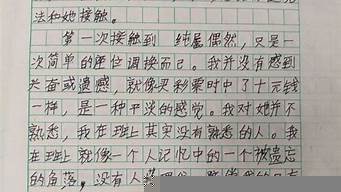 法和她接触。
第一次接触到 纯属偶然，只是一
次简单的座位调换而已。我并没有感到
兴奋或遗憾，就像买彩票时中了十元钱
一样，是一种平淡的感觉。我对她并不
熟悉，我在班上其实没有熟悉的人。我
在班上就像一个人记忆中的一个被遗忘
的角落。没有人